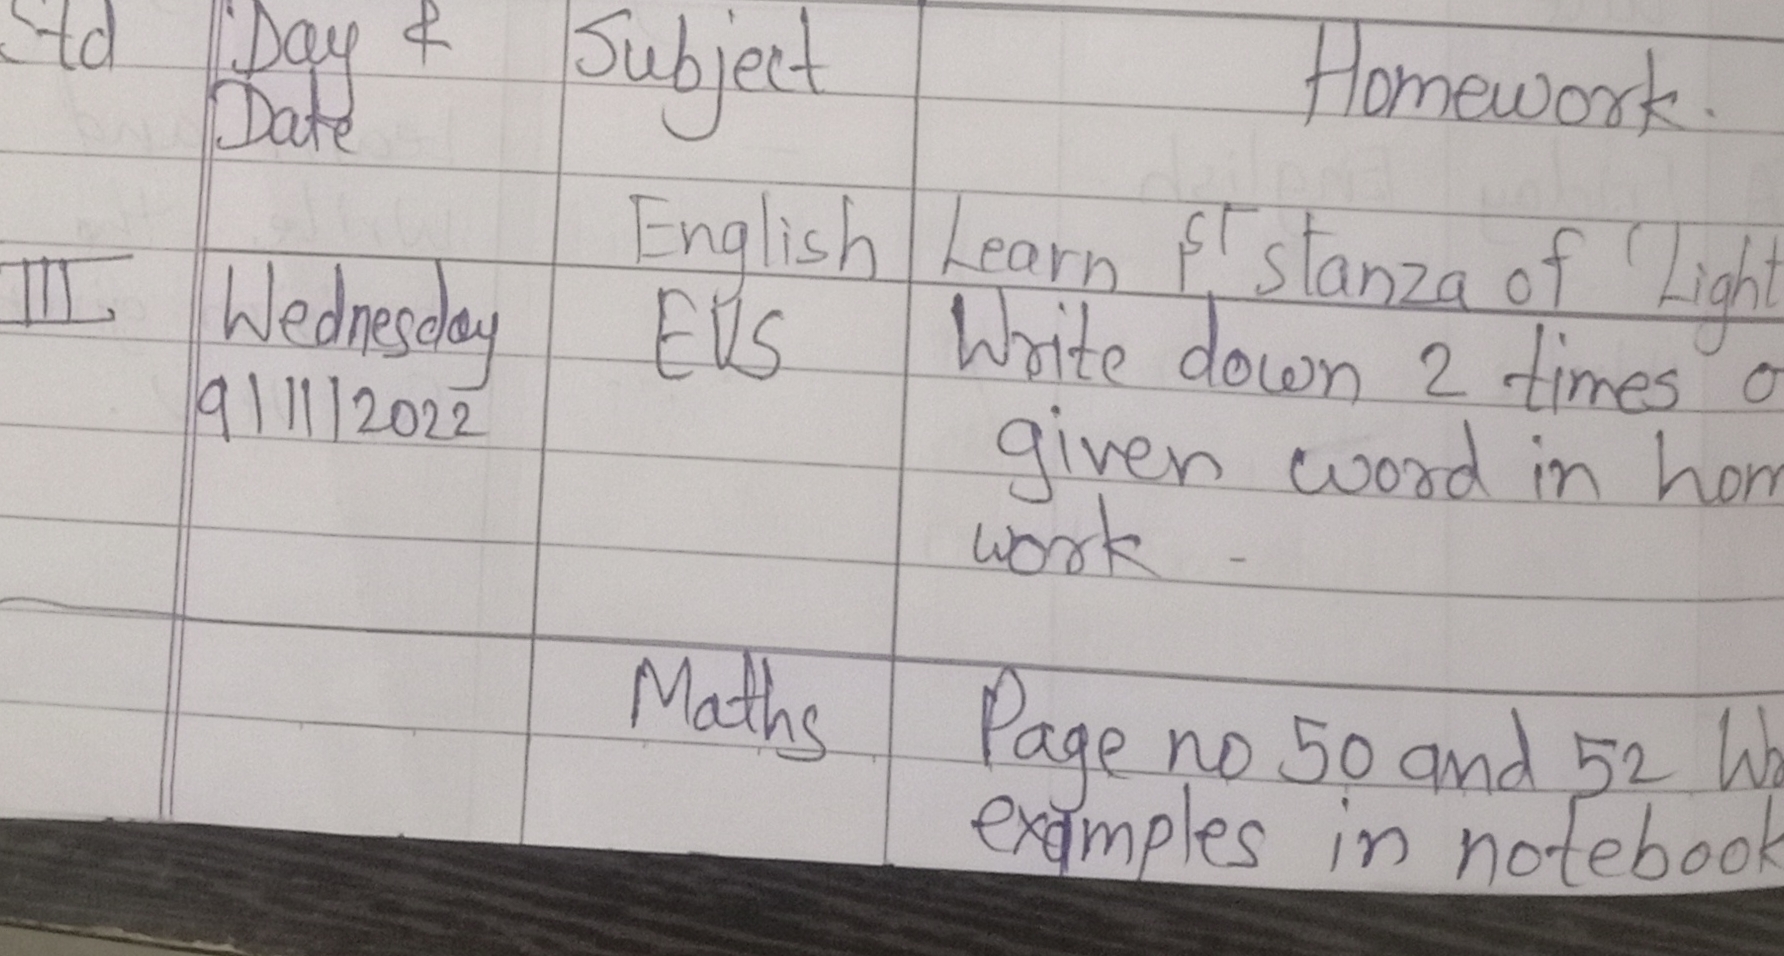 Std Day & Subject Homework.
Date
English Learn 1st stanza of "Light
III Wednesday EVS Write down 2 times
9/11/2022 given word in hom
work -
Maths Page no 50 and 52
examples in notebook